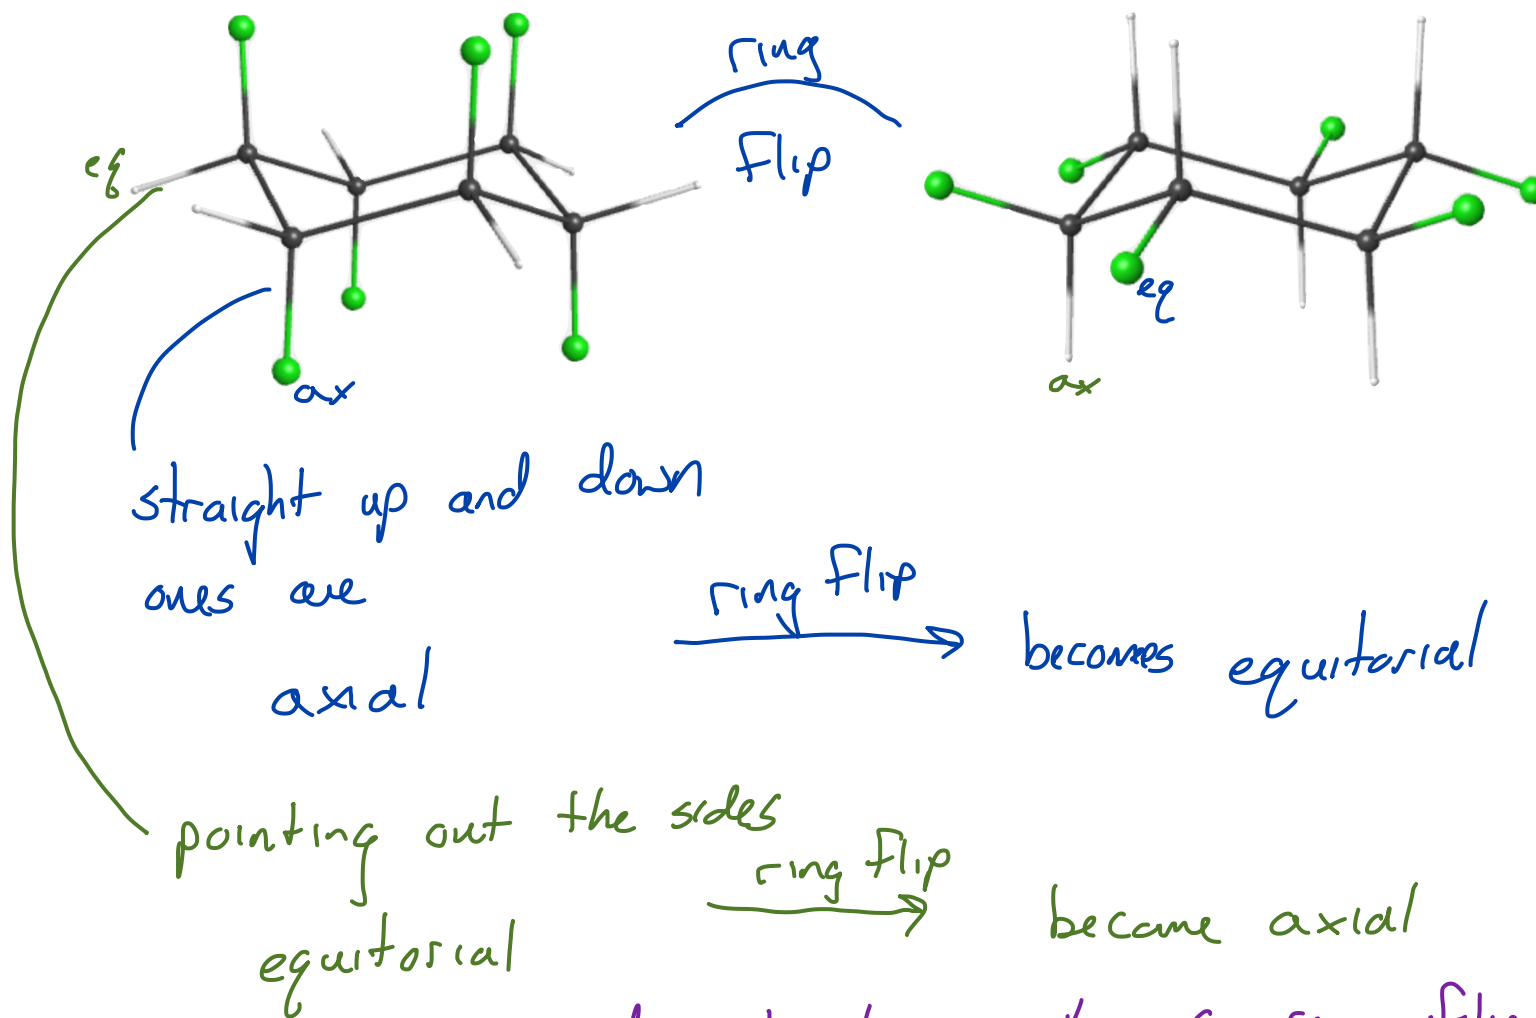 ring
flip
eq
eq
ax
ax
straight up and down
ones are
axial
ring flip
becomes equitorial
pointing out the sides
ring flip
equitorial
became axial